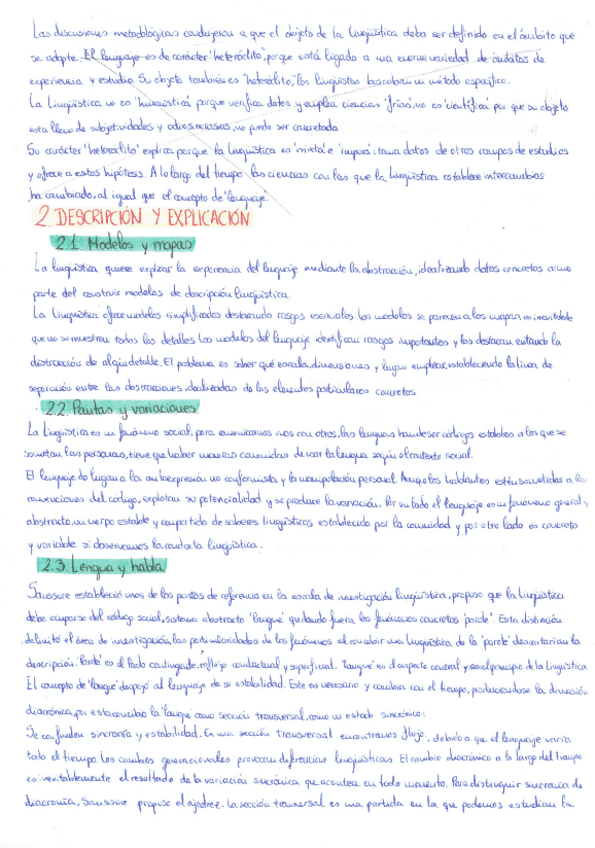 Las discusiones metodológicas condujeron a que el objeto de la Lingüística deba ser definido en el ámbito que
se adopte. El lenguaje es de carácter 'heteróclito', porque está ligado a una enorme variedad de ámbitos de
experiencia y estudio. Su objeto también es 'heteróclito', los lingüistas buscaban un método específico.
La Lingüística no es 'humanística' porque verifica datos y emplea ciencias 'frías', no es 'científica' por que su objeto
esta lleno de subjetividades y, no puede ser concretado
Su carácter 'heteróclito' explica porque la Lingüística es 'mixta' e 'impura': toma datos de otros campos de estudios
y ofrece a estos hipótesis. A lo largo del tiempo las ciencias con las que la Lingüística establece intercambios
ha cambiado, al igual que el concepto de 'lenguaje'.
2. DESCRIPCIÓN Y EXPLICACIÓN
2.1. Modelos y mapas
La lingüística quiere explicar la experiencia del lenguaje mediante la abstracción, idealizando datos concretos como
parte del construir modelos de descripción lingüística.
La Lingüística ofrece modelos simplificados destacando rasgos esenciales. Los modelos se parecen a los mapas, es inevitable
que no se muestran todos los detalles. Los modelos del lenguaje identifican rasgos importantes y los destacan evitando la
distracción de algún detalle. El problema es saber qué escala, dimensiones y emplear, estableciendo la línea de
separación entre las abstracciones idealizadas de los elementos particulares concretos.
2.2. Pautas y variaciones
La Lingüística es un fenómeno social, para comunicarnos unos con otros, las lenguas han de ser códigos estables a los que se
sometan las personas, tiene que haber maneras comunes de usar la lengua según el contexto social.
El lenguaje da lugar a la autoexpresión no conformista y la manipulación personal. Aunque los hablantes estén sometidos a las
convenciones del código, explotan su potencialidad y se produce la variación. Por un lado el lenguaje es un fenómeno general y
abstracto, un cuerpo estable y compartido de saberes lingüísticos establecido por la comunidad y por otro lado es concreto
y variable si observamos la conducta lingüística.
2.3. Lengua y habla
Saussure estableció unos de los puntos de referencia en la escala de investigación lingüística, propuso que la Lingüística
debe ocuparse del código social, sistema abstracto 'langue' quedando fuera los fenómenos concretos 'parole'. Esta distinción
delimitó el área de investigación, las particularidades de los fenómenos al concebir una lingüística de la 'parole' desvirtuarían la
descripción. 'Parole' es el lado contingente, reflejo conductual y superficial. 'Langue' es el aspecto central y es el principio de la Lingüística.
El concepto de 'langue' despojó al lenguaje de su estabilidad. Este es necesario y cambia con el tiempo, produciéndose la dimensión
diacrónica, por esto, concibio la 'langue' como sección transversal, como un estado sincrónico:
Se confunden sincronía y estabilidad. En una sección transversal encontramos flujo, debido a que el lenguaje varía
todo el tiempo. Los cambios generacionales provocan diferencias lingüísticas. El cambio diacrónico a lo largo del tiempo
es inevitablemente el resultado de la variación sincrónica que acontece en todo momento. Para distinguir sincronía de
diacronía, Saussure propuso el ajedrez. La sección transversal es una partida en la que podemos estudiar la